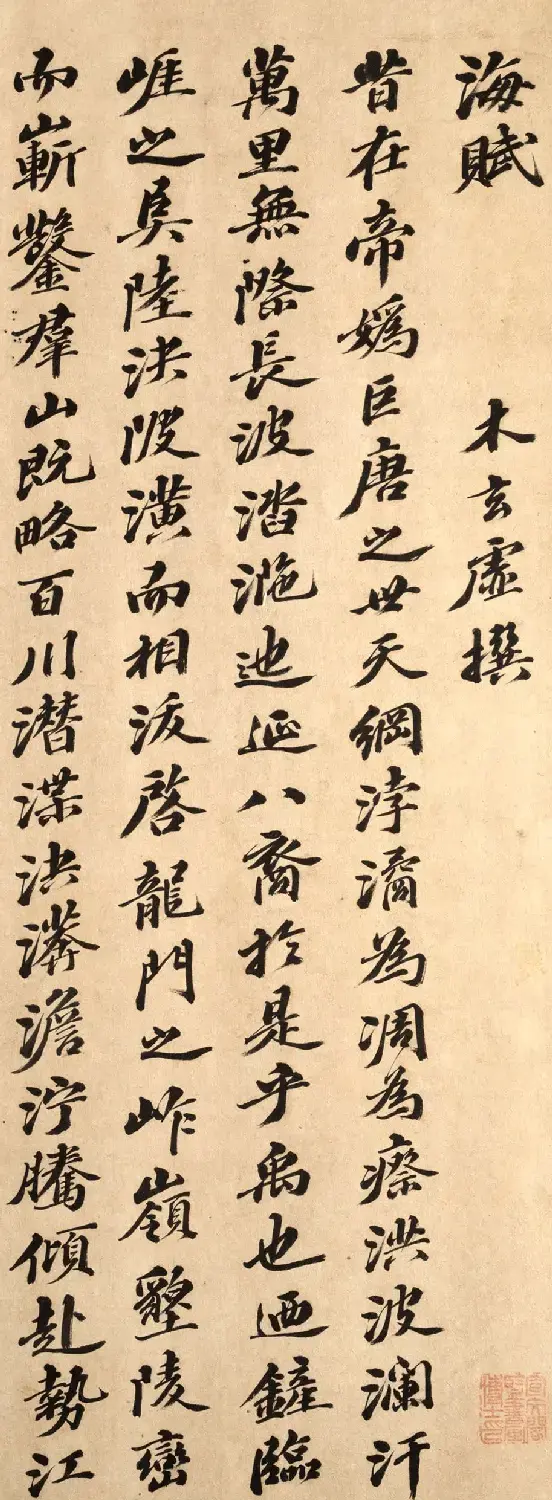 海賦 木玄虛撰
昔在帝媯巨唐之世天綱浡潏為凋為瘵洪波瀾汗
萬里無際長波涾迆延八裔於是乎禹也迺鏟臨
崖之阜陸決陂潢而相沷啓龍門之岝嶺墾陵巒
而嶄鑿羣山既略百川潛渫決漭澹泞騰傾赴勢江